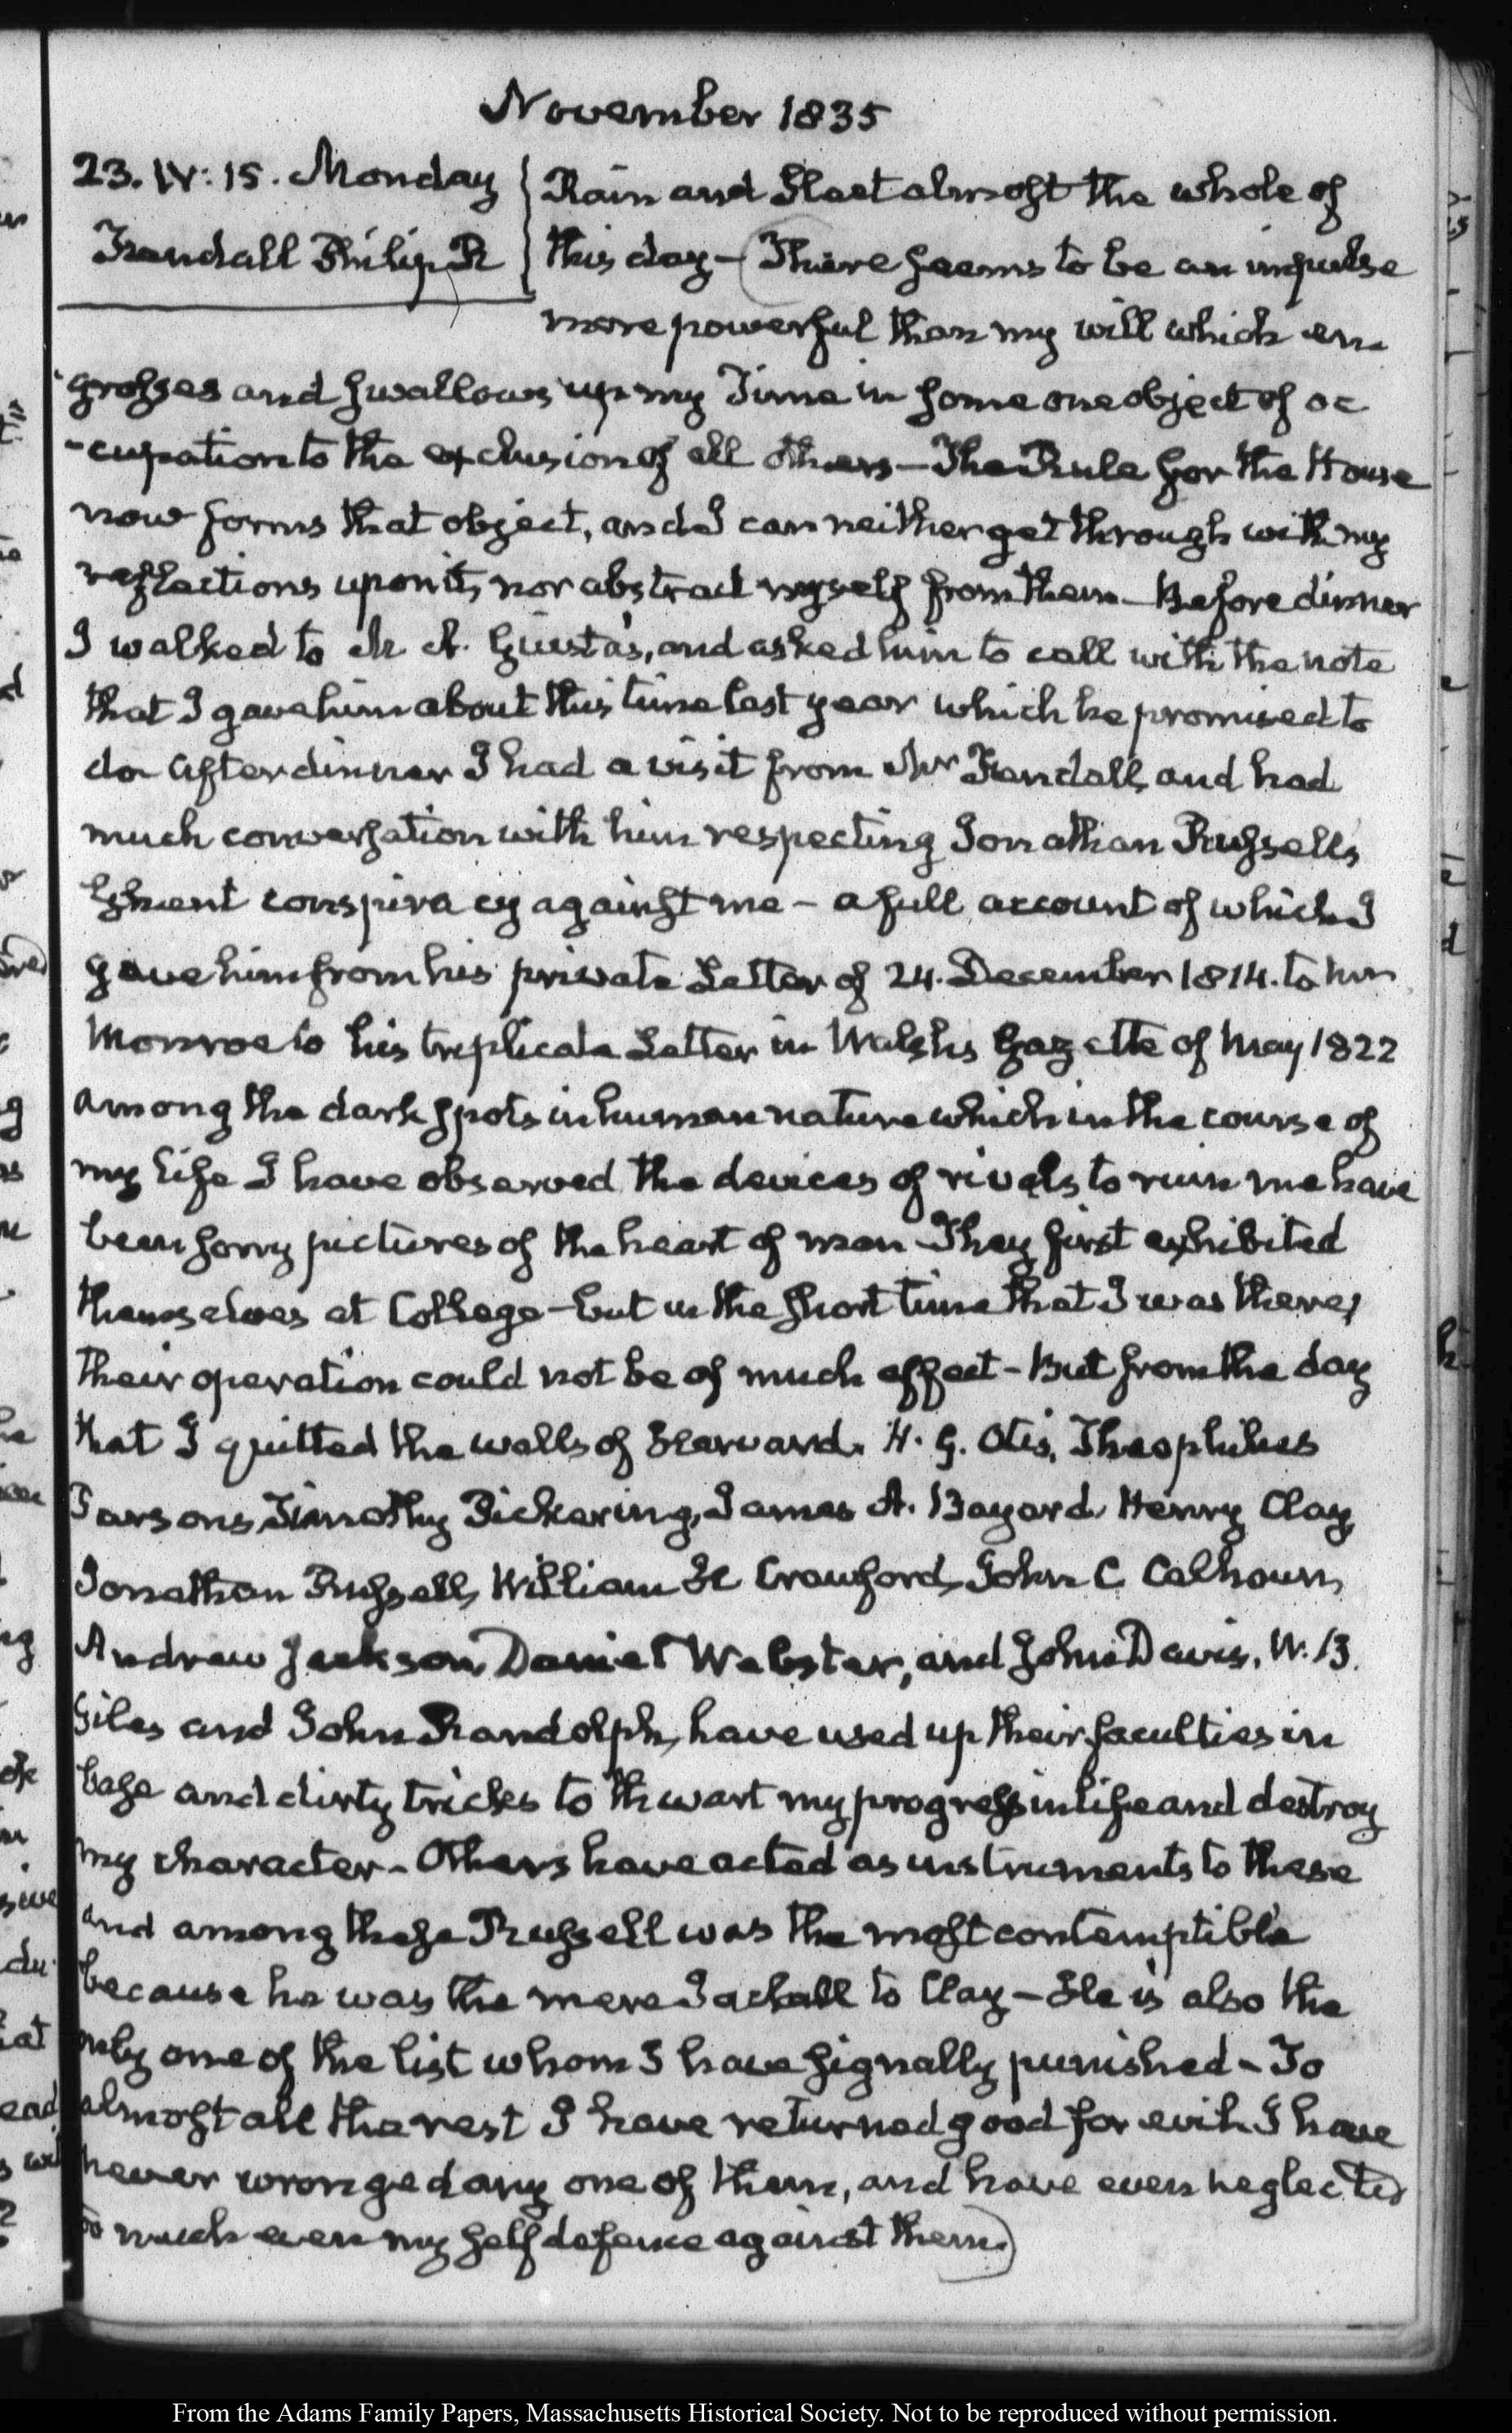 November 1835
23. IV: 15. Monday
Fendall Philip R
Rain and Sleet almost the whole of
this day – There seems to be an impulse
more powerful than my will which en
grosses and swallows up my Time in some one object of oc
-cupation to the exclusion of all others – The Rule for the House
now forms that object, and I can neither get through with my
reflections upon it, nor abstract myself from them – Before dinner
I walked to Mr A. Giusta's, and asked him to call with the note
that I gave him about this time last year which he promised to
do After dinner I had a visit from Mr Fendall, and had
much conversation with him respecting Jonathan Russells
Ghent conspiracy against me – a full account of which I
gave him from his private Letter of 24. December 1814. to Mr
Monroe to his triplicate Letter in Walsh's Gazette of May 1822
among the dark spots in human nature which in the course of
my Life I have observed the devices of rivals to ruin me have
been sorry pictures of the heart of man They first exhibited
themselves at College – but in the short time that I was there,
their operation could not be of much effect – But from the day
that I quitted the walls of Harvard. H. G. Otis, Theophilus
Parsons, Timothy Pickering, James A. Bayard, Henry Clay,
Jonathan Russell, William H Crawford, John C. Calhoun,
Andrew Jackson, Daniel Webster, and John Davis, W. B.
Giles and John Randolph, have used up their faculties in
base and dirty tricks to thwart my progress in life and destroy
my character – Others have acted as instruments to these
and among these Russell was the most contemptible
because he was the mere Jackall to Clay – He is also the
only one of the list whom I have signally punished – To
almost all the rest I have returned good for evil. I have
never wronged any one of them, and have even neglected
too much even my self defence against them.
From the Adams Family Papers, Massachusetts Historical Society. Not to be reproduced without permission.